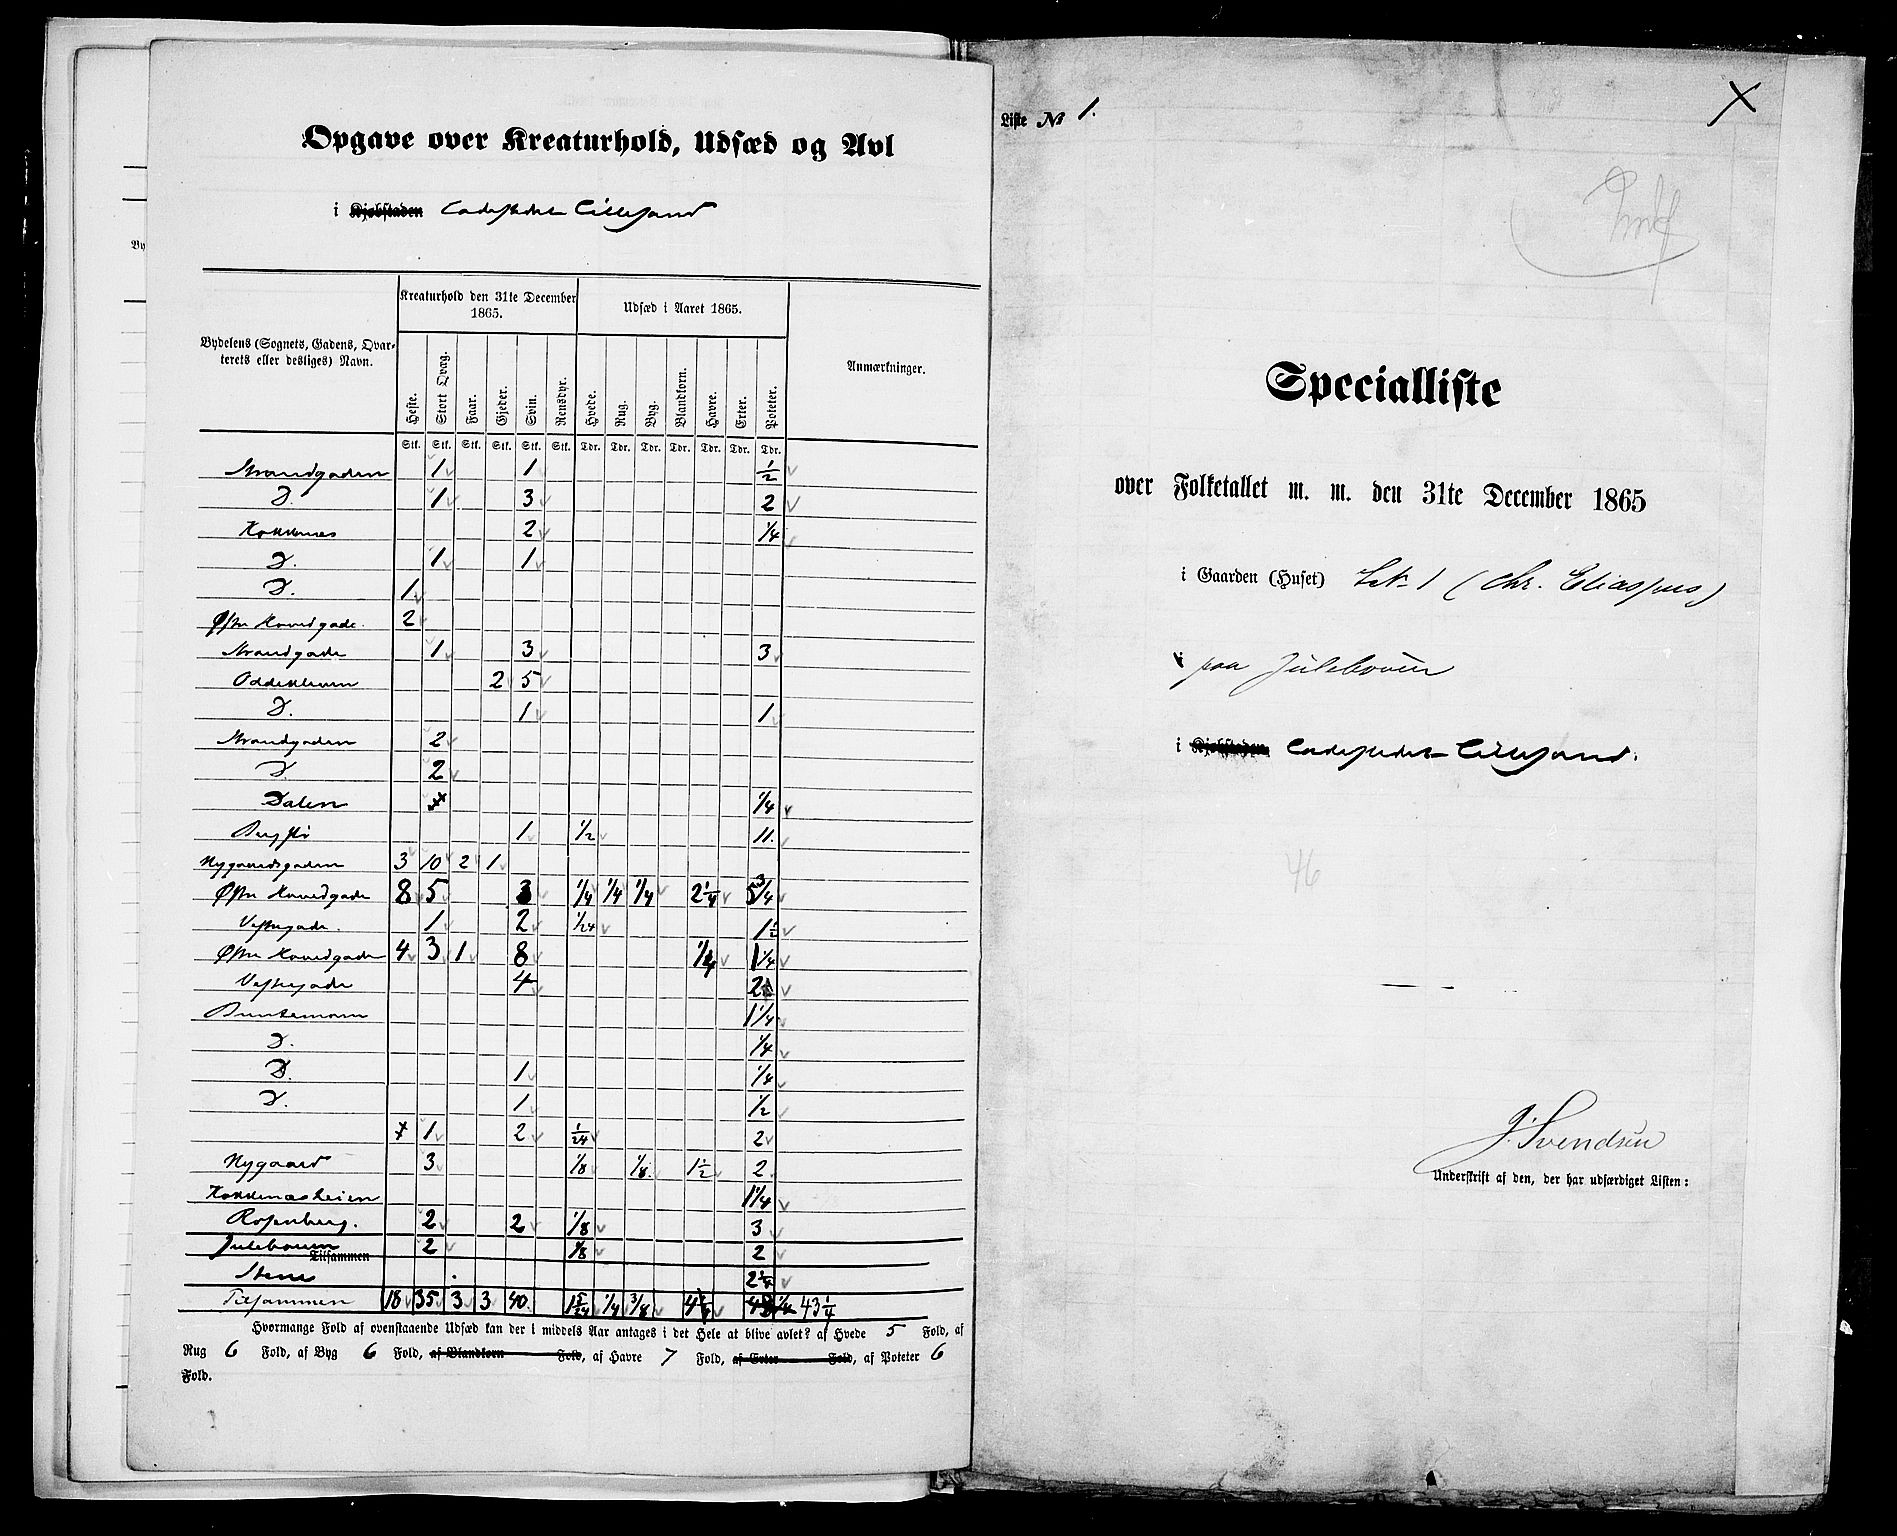 Opgave over Kreaturhold, Udsæd og Avl
i Kjøbstaden Ladestedet Lillesand
Bydelens (Sognets, Gadens, Qvarterets eller desliges) Navn.
Kreaturhold den 31te December 1865.
Udsæd i Aaret 1865.
Anmærkninger.
Heste. Stort Qvæg. Faar. Gjeder. Svin. Rensdyr. Hvede. Rug. Byg. Blandkorn. Havre. Erter. Poteter.
Stk. Stk. Stk. Stk. Stk. Stk. Tdr. Tdr. Tdr. Tdr. Tdr. Tdr. Tdr.
Strandgaden 1 1 1/2
D. 1 3 2
Kokkenes 2 1/4
D. 1 1
D. 1
Østre Hovedgade. 2
Strandgade 1 3 3
Oddekleven 2 5
D. 1 1
Strandgaden 2
D 2
Dalen 1/4
1 1/2 11.
Nygaardsgaden 3 10 2 1
Østre Hovedgade 8 5 3 1/4 1/4 1/4 2 1/4 5 3/4
Vestregade. 1 2 1/24 1 1/2
Østre Hovedgade 4 3 1 8 1/4 1 1/4
Vestregade 4 2
1 1/4
D. 1/4
D. 1 1/4
D. 1 1/2
1 2 1/24 2
Nygaard 3 1/8 1/8. 1 1/2 2.
Kokkenæsheien 1 1/4
Rosenberg. 2 2 1/8 3
Julebouen 2 1/8 2
Tilsammen
Stene 2 1/4
Tilsammen 18 35 3 3 40. 1 5/24 1/4 3/8 43 1/4
Hvormange Fold af ovenstaaende Udsæd kan der i middels Aar antages i det Hele at blive avlet? af Hvede 5 Fold, af
Rug 6 Fold, af Byg 6 Fold, af Blandkorn Fold, af Havre 7 Fold, af Erter Fold, af Poteter 6
Fold.
Liste № 1.
X
Specialliste
over Folketallet m. m. den 31te December 1865
i Gaarden (Huset) 1 (Chr. Eliassens)
i paa Julebouen
i Kjøbstaden Ladestedet Lillesand.
46
J. Svendsen
Underskrift af den, der har udfærdiget Listen: